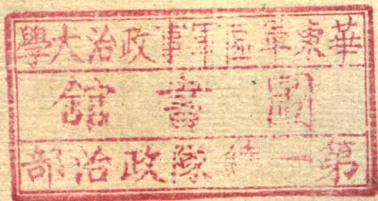 華東軍區軍事政治大學
圖書館
第一總隊政治部